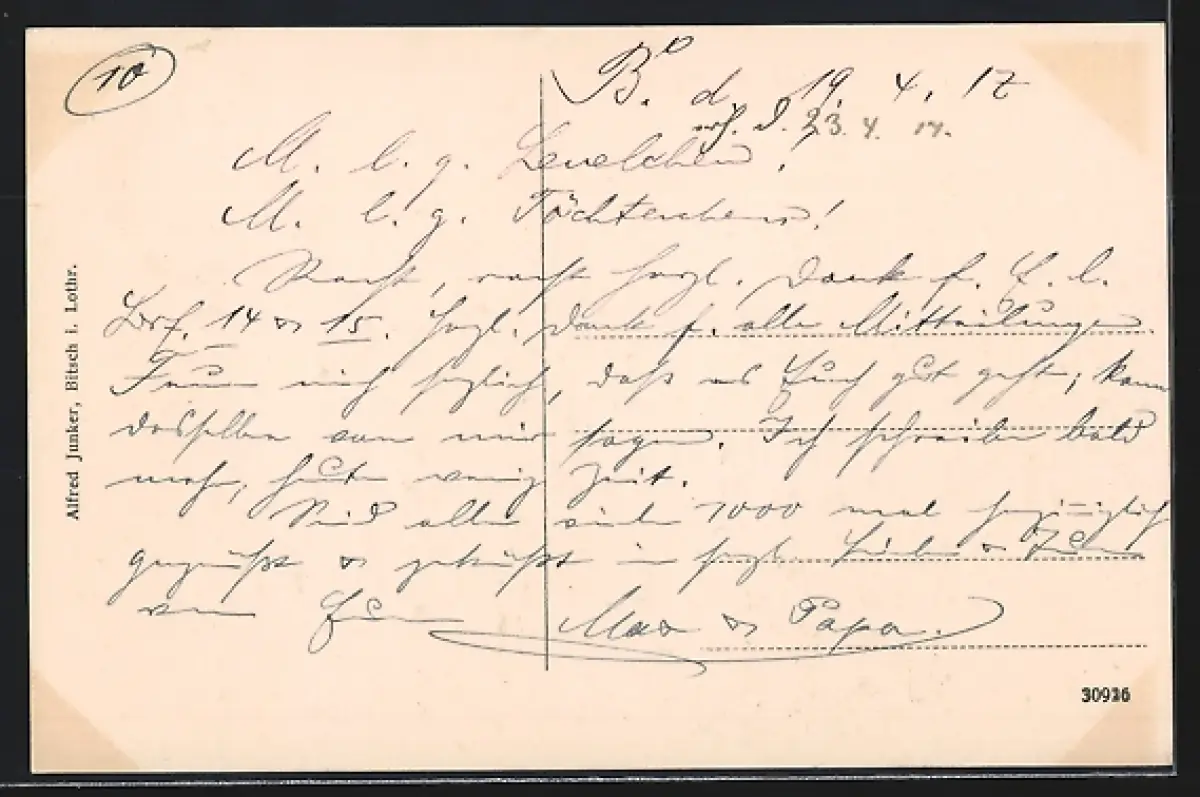 10
B. d. 19. 4. 17
erh. d. 23. 4. 17.
M. l. g. Lenelchen!
M. l. g. Töchterchens!
Recht, recht herzl. Dank f. E. l.
Brf. 14 & 15. Herzl. Dank f. alle Mitteilungen.
Freue mich herzlich, daß es Euch gut geht, kann
dasselbe von mir sagen. Ich schreibe bald
mehr, heute wenig Zeit.
Seid alle viele 1000 mal herzinniglich
gegrüßt & geküßt in herzl. Liebe & Treue
von Eurem Max & Papa.
Alfred Junker, Bitsch i. Lothr.
30936